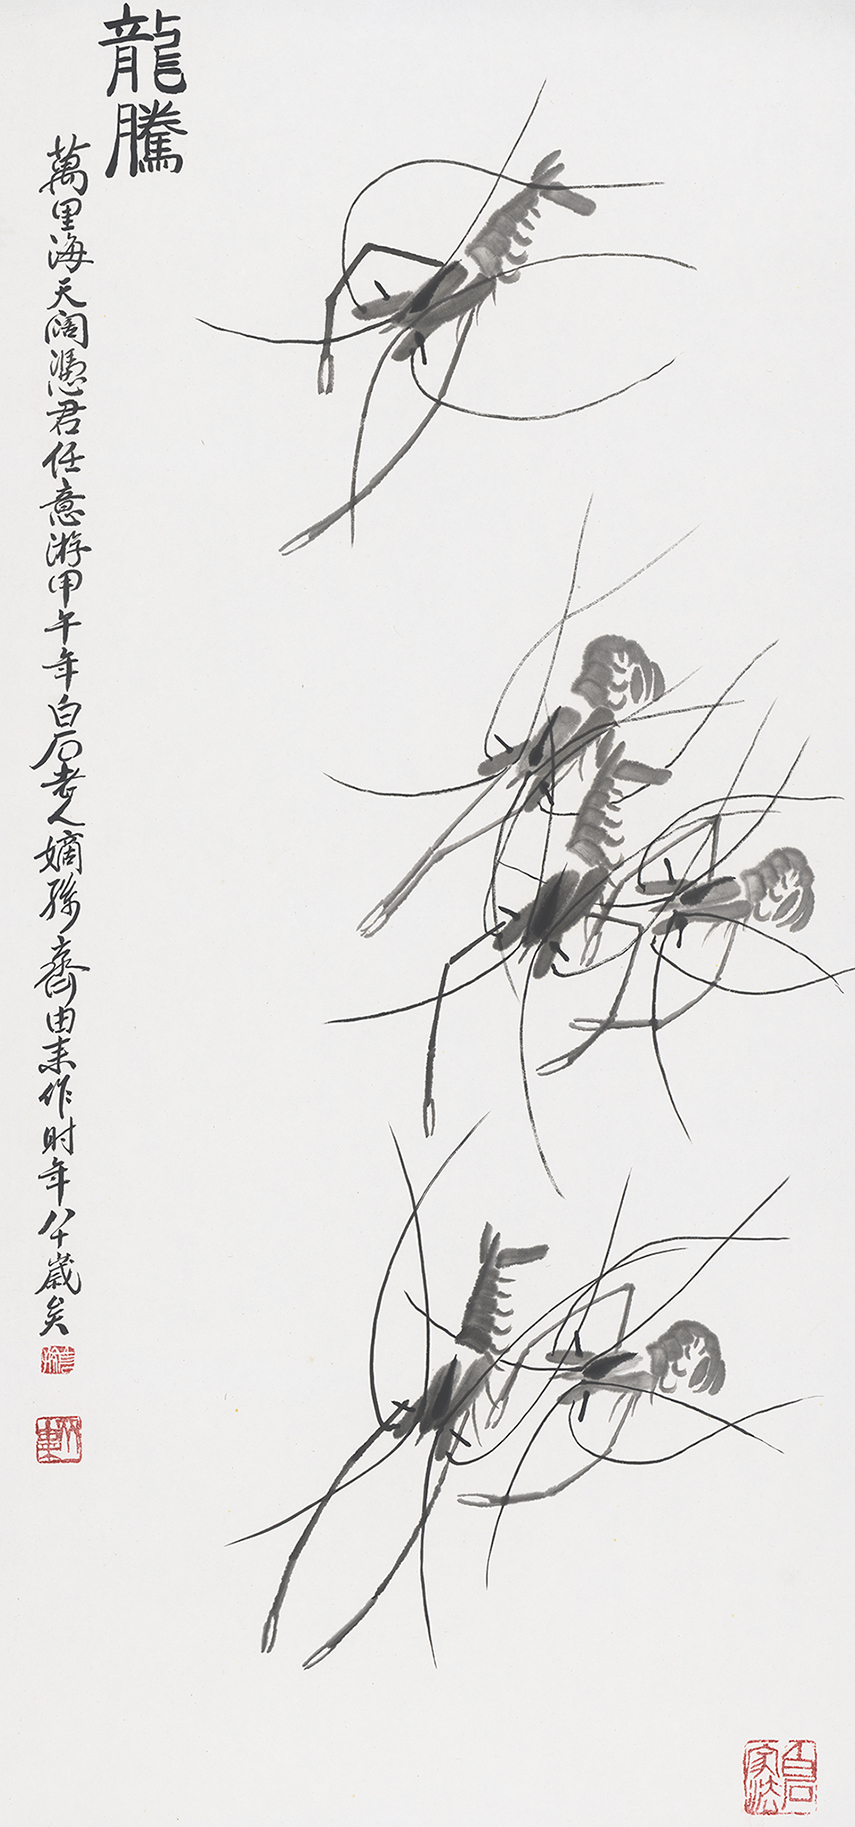 龍騰
萬里海天闊憑君任意游甲午年白石老人嫡孫齊由來作时年八十歲矣
白石家法